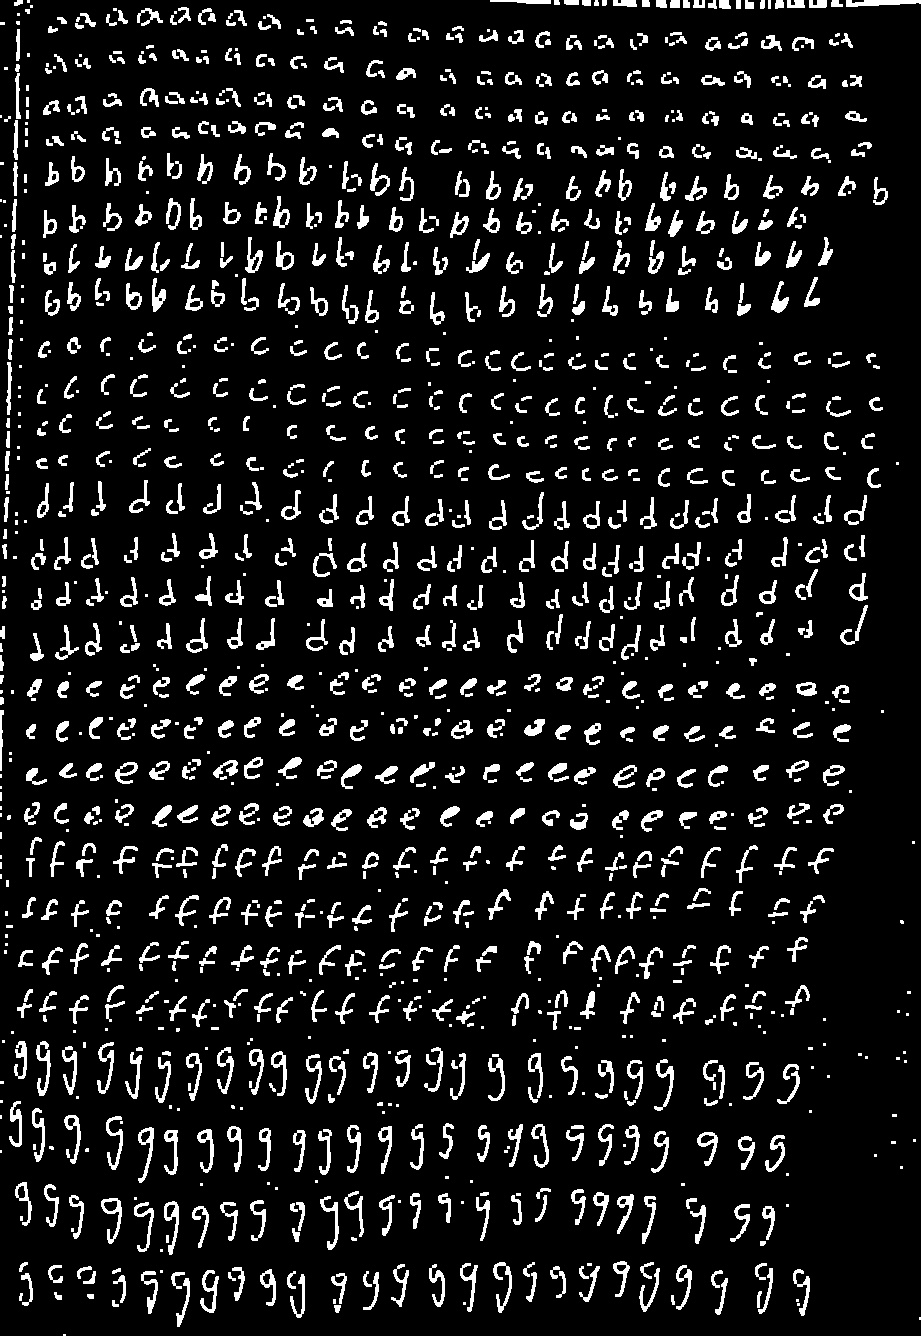 a a a a a a a a a a a a a a a a a a a a a a a a a
a a a a a a a a a a a a a a a a a a a a a a a a a
a a a a a a a a a a a a a a a a a a a a a a a a a
a a a a a a a a a a a a a a a a a a a a a a a a a
b b b b b b b b b b b b b b b b b b b b b b b b b
b b b b b b b b b b b b b b b b b b b b b b b b b b
b b b b b b b b b b b b b b b b b b b b b b b b b
b b b b b b b b b b b b b b b b b b b b b b b b b
c c c c c c c c c c c c c c c c c c c c c c c c c
c c c c c c c c c c c c c c c c c c c c c c c c c
c c c c c c c c c c c c c c c c c c c c c c c c c
c c c c c c c c c c c c c c c c c c c c c c c c c
d d d d d d d d d d d d d d d d d d d d d d d d d
d d d d d d d d d d d d d d d d d d d d d d d d d
d d d d d d d d d d d d d d d d d d d d d d d d d
d d d d d d d d d d d d d d d d d d d d d d d d d
e e e e e e e e e e e e e e e e e e e e e e e e e
e e e e e e e e e e e e e e e e e e e e e e e e e
e e e e e e e e e e e e e e e e e e e e e e e e e
e e e e e e e e e e e e e e e e e e e e e e e e e
f f f f f f f f f f f f f f f f f f f f f f f f f
f f f f f f f f f f f f f f f f f f f f f f f f f
f f f f f f f f f f f f f f f f f f f f f f f f f
f f f f f f f f f f f f f f f f f f f f f f f f f
g g g g g g g g g g g g g g g g g g g g g g g g g
g g g g g g g g g g g g g g g g g g g g g g g g g
g g g g g g g g g g g g g g g g g g g g g g g g g
g g g g g g g g g g g g g g g g g g g g g g g g g